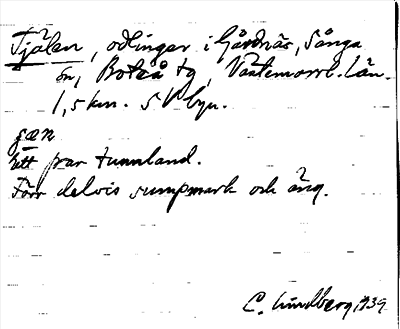 Tjälen, odlingar i Gårdnäs, Sånga
sn, Boteå tg, Västernorrl. län.
1,5 km. SV byn.
jæn
Ett par tunnland.
Förr delvis sumpmark och äng.
C. Lindberg, 1939